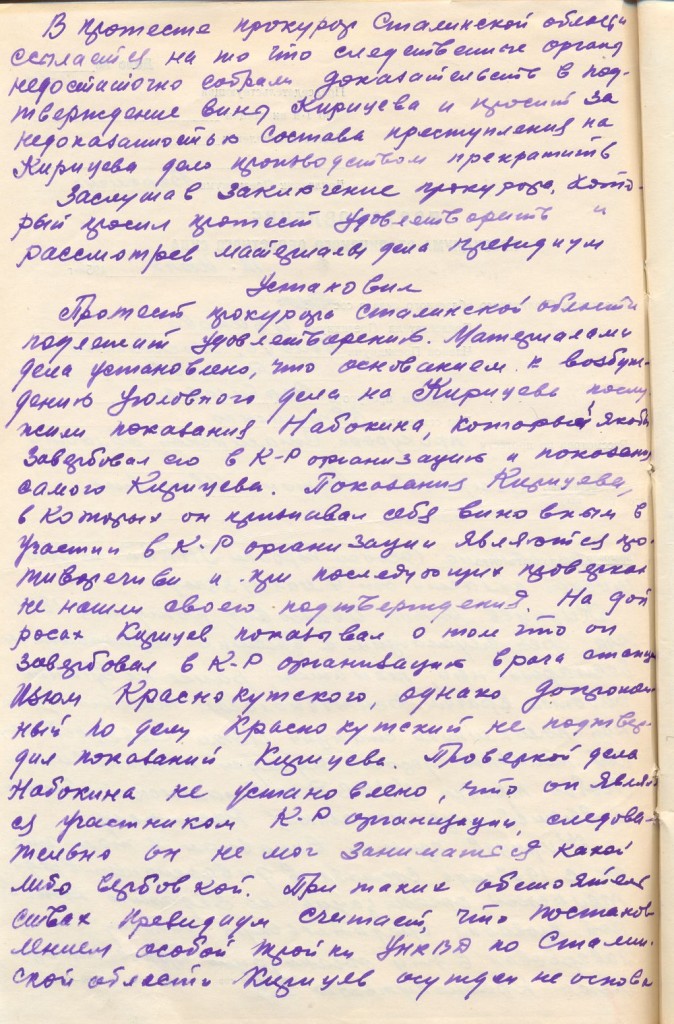 В протесте прокурор Сталинской области
ссылается на то что следственные органы
недостаточно собрали доказательств в под-
тверждение вины Кирицева и просит за
недоказанностью состава преступления на
Кирицева дело производством прекратить
Заслушав заключение прокурора, кото-
рый просил протест удовлетворить и
рассмотрев материалы дела президиум
Установил
Протест прокурора Сталинской области
подлежит удовлетворению. Материалами
дела установлено, что основанием к возбуж-
дению уголовного дела на Кирицева послу
жили показания Набокина, который якобы
завербовал его в К-Р организацию и показания
самого Кирицева. Показания Кирицева,
в которых он признавал себя виновным в
участии в К-Р организации являются про-
тиворечивы и при последующих проверках
не нашли своего подтверждения. На доп
росах Кирицев показывал о том что он
завербовал в К-Р организацию врача станции
Изюм Краснокутского, однако допрошен
ный по делу Краснокутский не подтвер-
дил показаний Кирицева. Проверкой дела
Набокина не установлено, что он являл
ся участником К-Р организации, следова-
тельно он не мог заниматся какой
либо вербовкой. При таких обстоятель
ствах президиум считает, что постанов
лением особой тройки УНКВД по Сталин-
ской области Кирицев осужден не основа